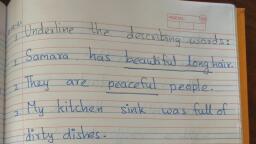 Underline the describing words:
1. Samara has beautiful long hair.
2. They are peaceful people.
3. My kitchen sink was full of
dirty dishes.